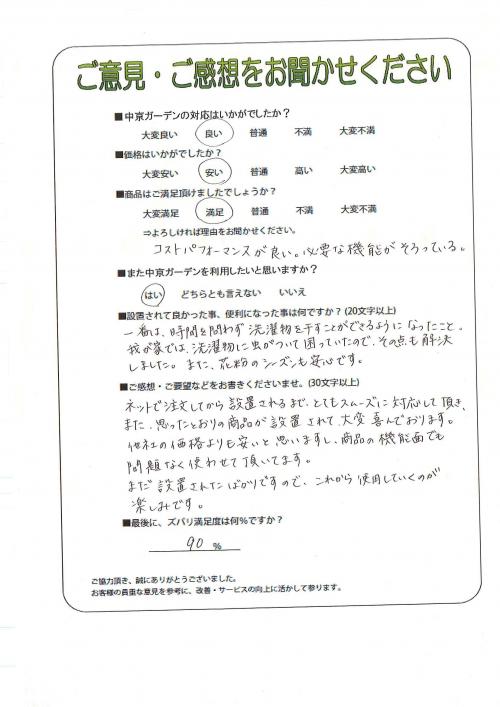 ご意見・ご感想をお聞かせください
■中京ガーデンの対応はいかがでしたか？
大変良い 良い 普通 不満 大変不満
■価格はいかがでしたか？
大変安い 安い 普通 高い 大変高い
■商品はご満足頂けましたでしょうか？
大変満足 満足 普通 不満 大変不満
⇒よろしければ理由をお聞かせください。
コストパフォーマンスが良い。必要な機能がそろっている。
■また中京ガーデンを利用したいと思いますか？
はい どちらとも言えない いいえ
■設置されて良かった事、便利になった事は何ですか？(20文字以上)
一番は、時間を問わず洗濯物を干すことができるようになったこと。
我が家では、洗濯物に虫がついて困っていたので、その点も解決
しました。また、花粉のシーズンも安心です。
■ご感想・ご要望などをお書きくださいませ。(30文字以上)
ネットで注文してから設置されるまで、とてもスムーズに対応して頂き、
また、思ったとおりの商品が設置されて、大変喜んでおります。
他社の価格よりも安いと思いますし、商品の機能面でも
問題なく使わせて頂いてます。
まだ設置されたばかりですので、これから使用していくのが
楽しみです。
■最後に、ズバリ満足度は何％ですか？
90 ％
ご協力頂き、誠にありがとうございました。
お客様の貴重な意見を参考に、改善・サービスの向上に活かして参ります。